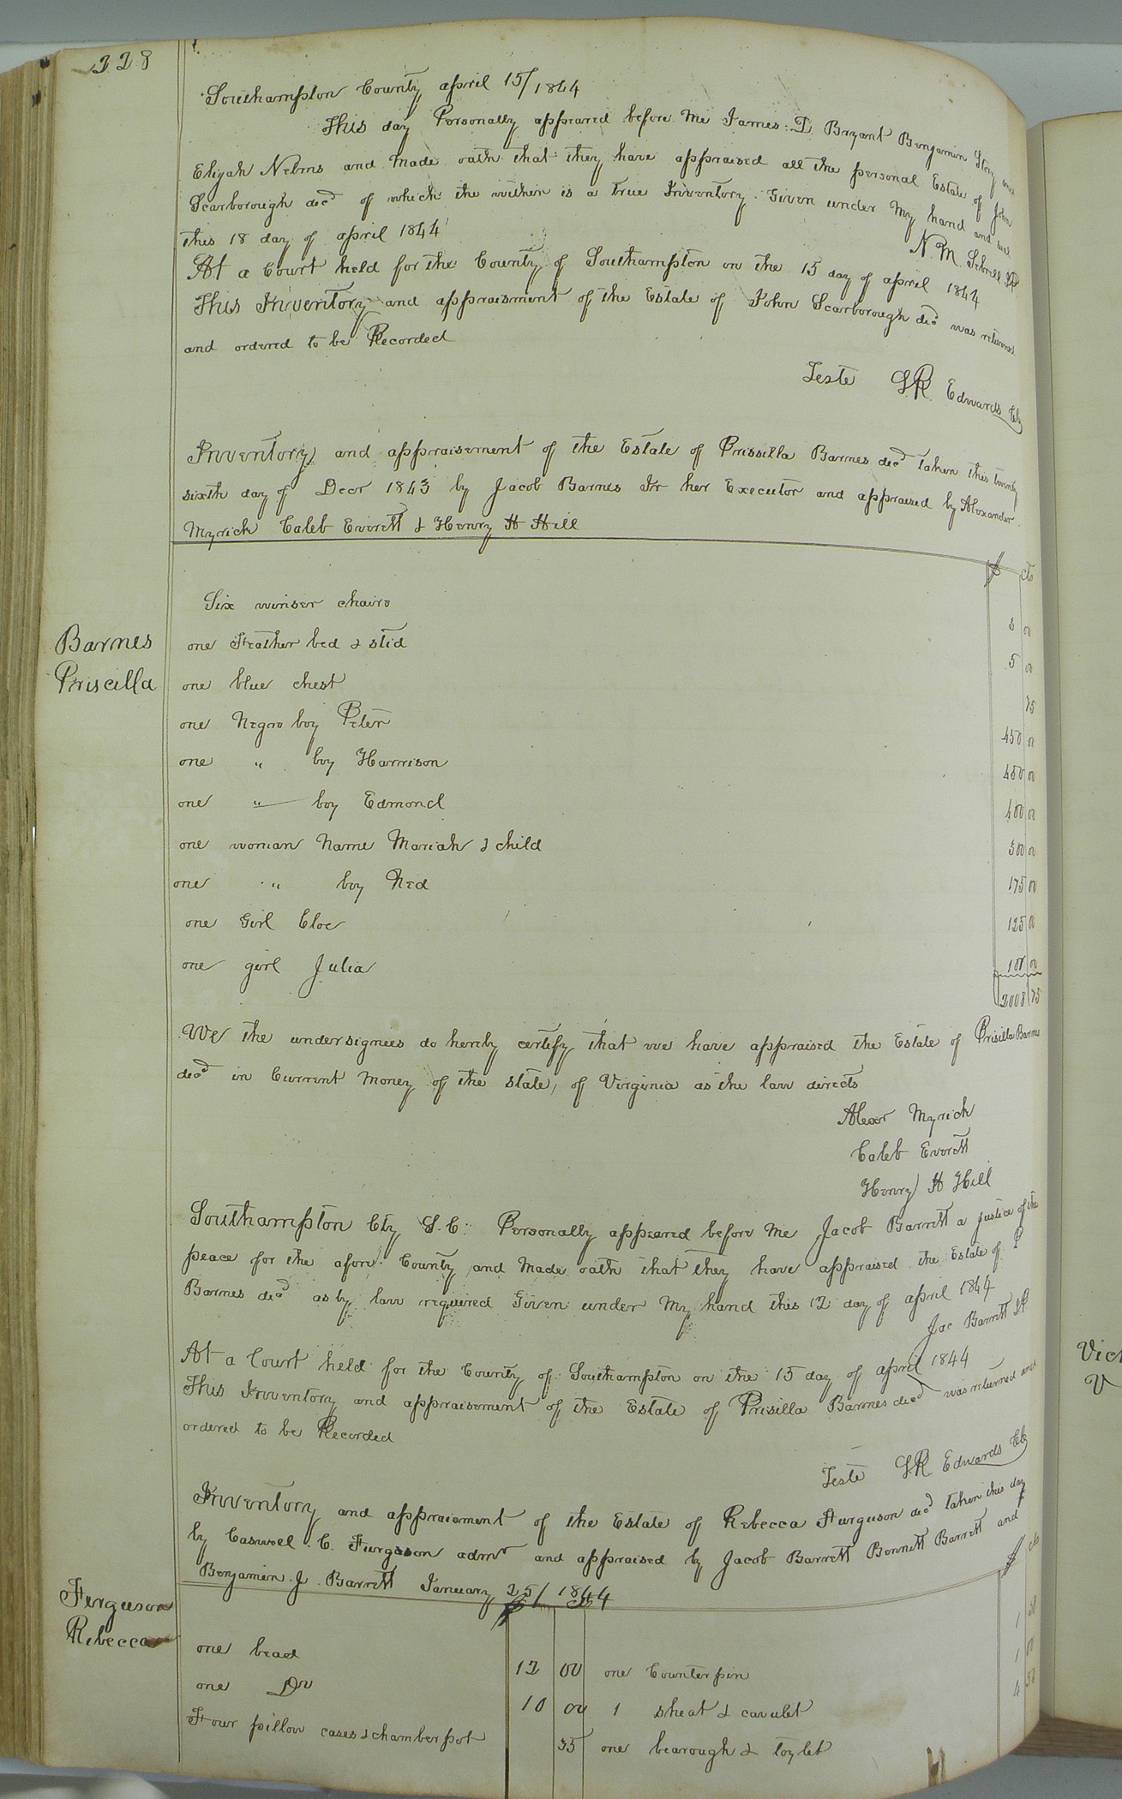 228
Southampton County april 15/1844
This day Personally appeared before me James D Bryant Benjamin Story and
Elijah Nelms and made oath that they have appraised all the personal Estate of John
Scarborough decd of which the within is a true Inventory Given under my hand and seal
this 18 day of april 1844
N. M. Sebrell JP
At a Court held for the County of Southampton on the 15 day of april 1844
This Inventory and appraisment of the Estate of John Scarborough decd was returned
and ordered to be Recorded
Teste LR Edwards Clk
Inventory and appraisement of the Estate of Prissilla Barnes decd taken this twenty
sixth day of Decr 1843 by Jacob Barnes Jr her Executor and appraised by Alexander
Myrick Caleb Everett & Henry H Hill
$ cts
Six winser chairs 3 00
Barnes
Priscilla
one Feather bed & stid 5 00
one blue chest 75
one Negro boy Peter 450 00
one " boy Harrison 450 00
one " boy Edmond 400 00
one woman Name Mariah & child 300 00
one " boy Ned 175 00
one Girl Cloe 125 00
one girl Julia 100 00
2008 75
We the undersignees do hereby certify that we have appraised the Estate of Prisilla Barnes
decd in Current Money of the state, of Virginia as the law directs
Alexr Myrick
Caleb Everett
Henry H Hill
Southampton Cty S.C: Personally appeared before me Jacob Barrett a justice of the
peace for the afore County and Made oath that they have appraised the Estate of P
Barnes decd as by law required Given under my hand this 12 day of april 1844
Jac Barrett JP
At a Court held for the County of Southampton on the 15 day of april 1844
This Inventory and appraisement of the Estate of Prisilla Barnes decd was returned and
ordered to be Recorded
Teste LR Edwards Clk
Inventory and appraisment of the Estate of Rebecca Furguson decd taken this day
by Caswell C. Furgsson admr and appraised by Jacob Barrett Bennett Barrett and
Benjamin J. Barrett January 25/1844
$ cts
Ferguson
Rebecca
one bead 12 00 one Counterpin 1
one Do 10 00 1 sheat & cavulet 1 00
Four pillow cases & chamber pot 35 one bearough & toylet 4